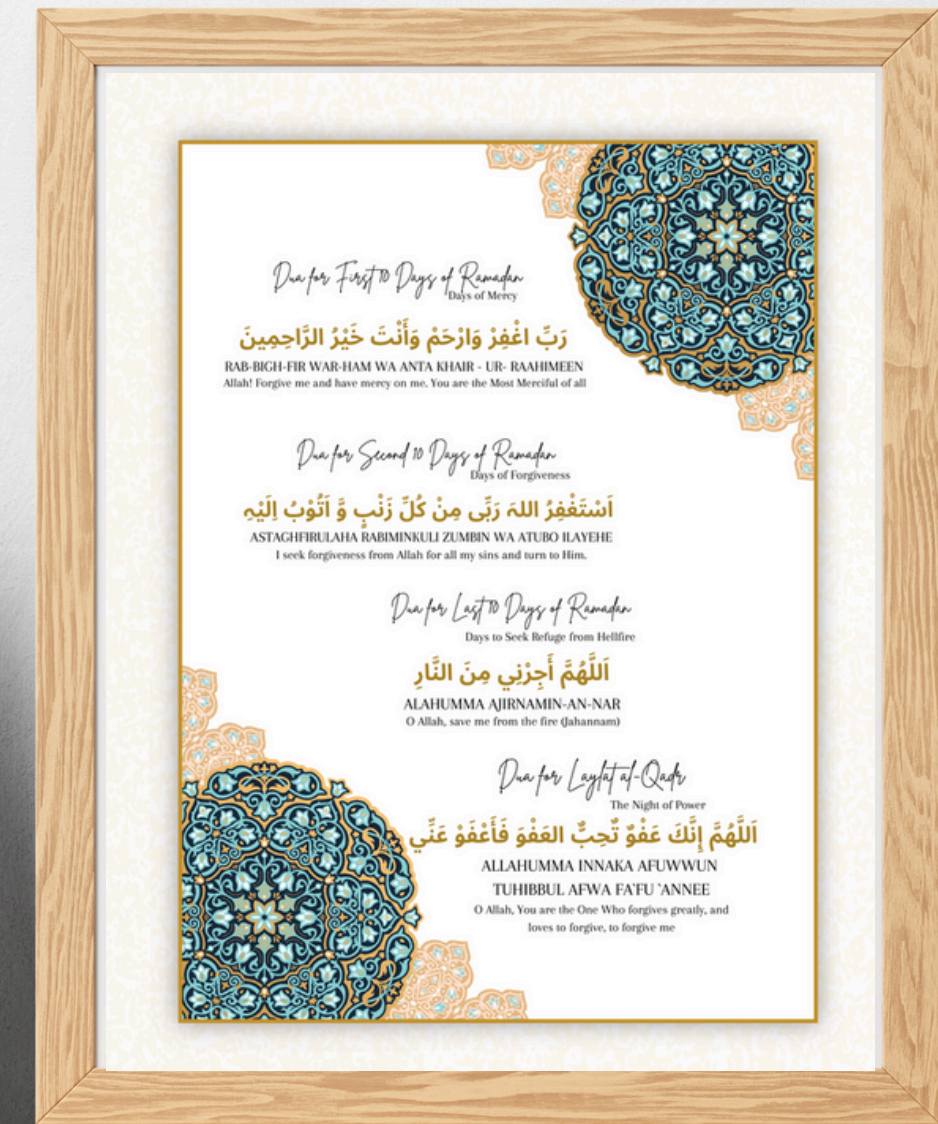 Dua for First 10 Days of Ramadan
Days of Mercy
رَبِّ اغْفِرْ وَارْحَمْ وَأَنْتَ خَيْرُ الرَّاحِمِينَ
RAB-BIGH-FIR WAR-HAM WA ANTA KHAIR - UR- RAAHIMEEN
Allah! Forgive me and have mercy on me. You are the Most Merciful of all
Dua for Second 10 Days of Ramadan
Days of Forgiveness
اَسْتَغْفِرُ اللهَ رَبِّى مِنْ كُلِّ زَنْبٍ وَّ اَتُوْبُ اِلَيْهِ
ASTAGHFIRULAHA RABIMINKULI ZUMBIN WA ATUBO ILAYEHE
I seek forgiveness from Allah for all my sins and turn to Him.
Dua for Last 10 Days of Ramadan
Days to Seek Refuge from Hellfire
اَللَّهُمَّ أَجِرْنِي مِنَ النَّارِ
ALAHUMMA AJIRNAMIN-AN-NAR
O Allah, save me from the fire (Jahannam)
Dua for Laylat al-Qadr
The Night of Power
اَللَّهُمَّ إِنَّكَ عَفْوٌ تٌحِبٌّ العَفْوَ فَأَعْفَوْ عَنِّي
ALLAHUMMA INNAKA AFUWWUN
TUHIBBUL AFWA FA'FU 'ANNEE
O Allah, You are the One Who forgives greatly, and
loves to forgive, to forgive me